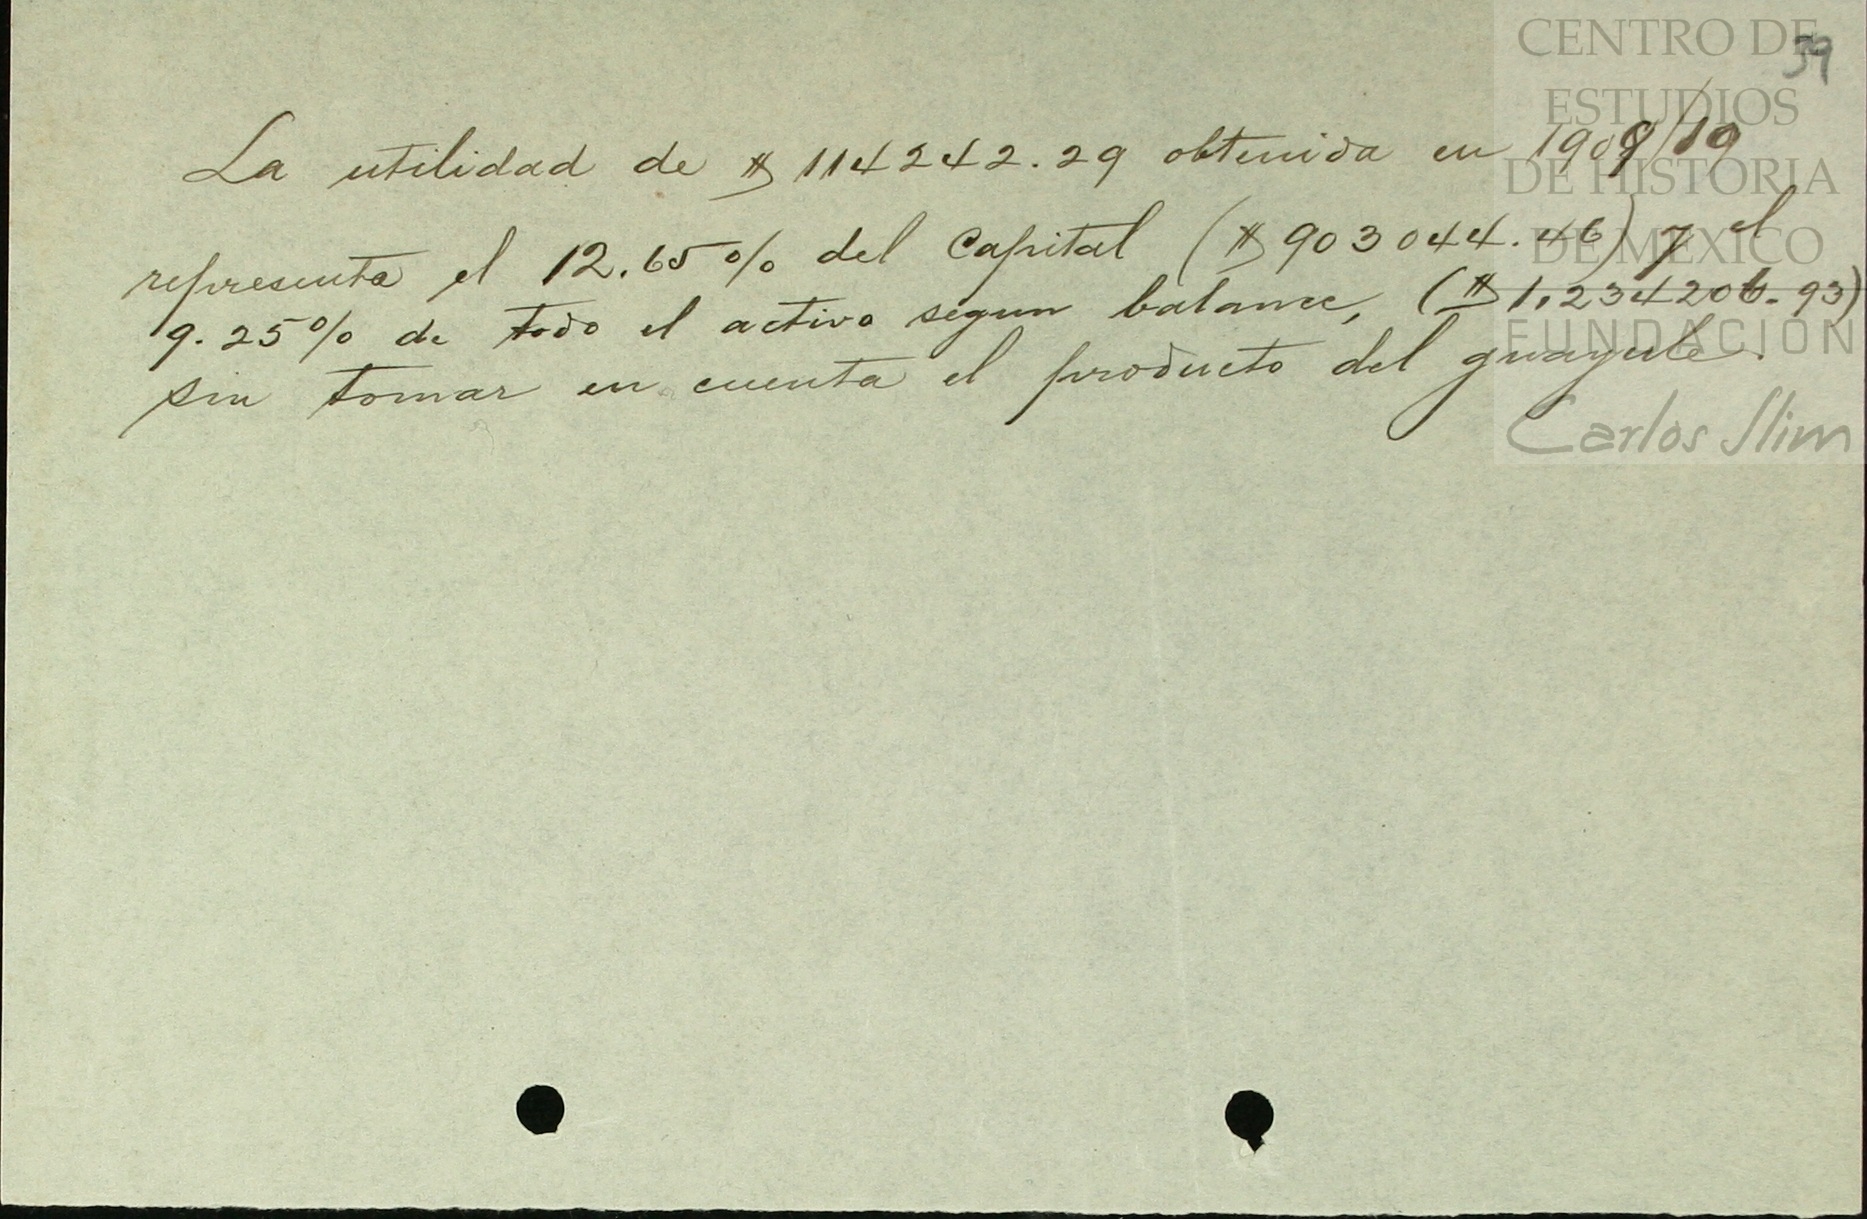 CENTRO DE
ESTUDIOS
DE HISTORIA
DE MÉXICO
FUNDACIÓN
Carlos Slim
39
La utilidad de $ 114242.29 obtenida en 1909/10
representa el 12.65% del Capital ($ 903044.46) y el
9.25% de todo el activo segun balance, ($ 1,234206.93)
sin tomar en cuenta el producto del guayule.